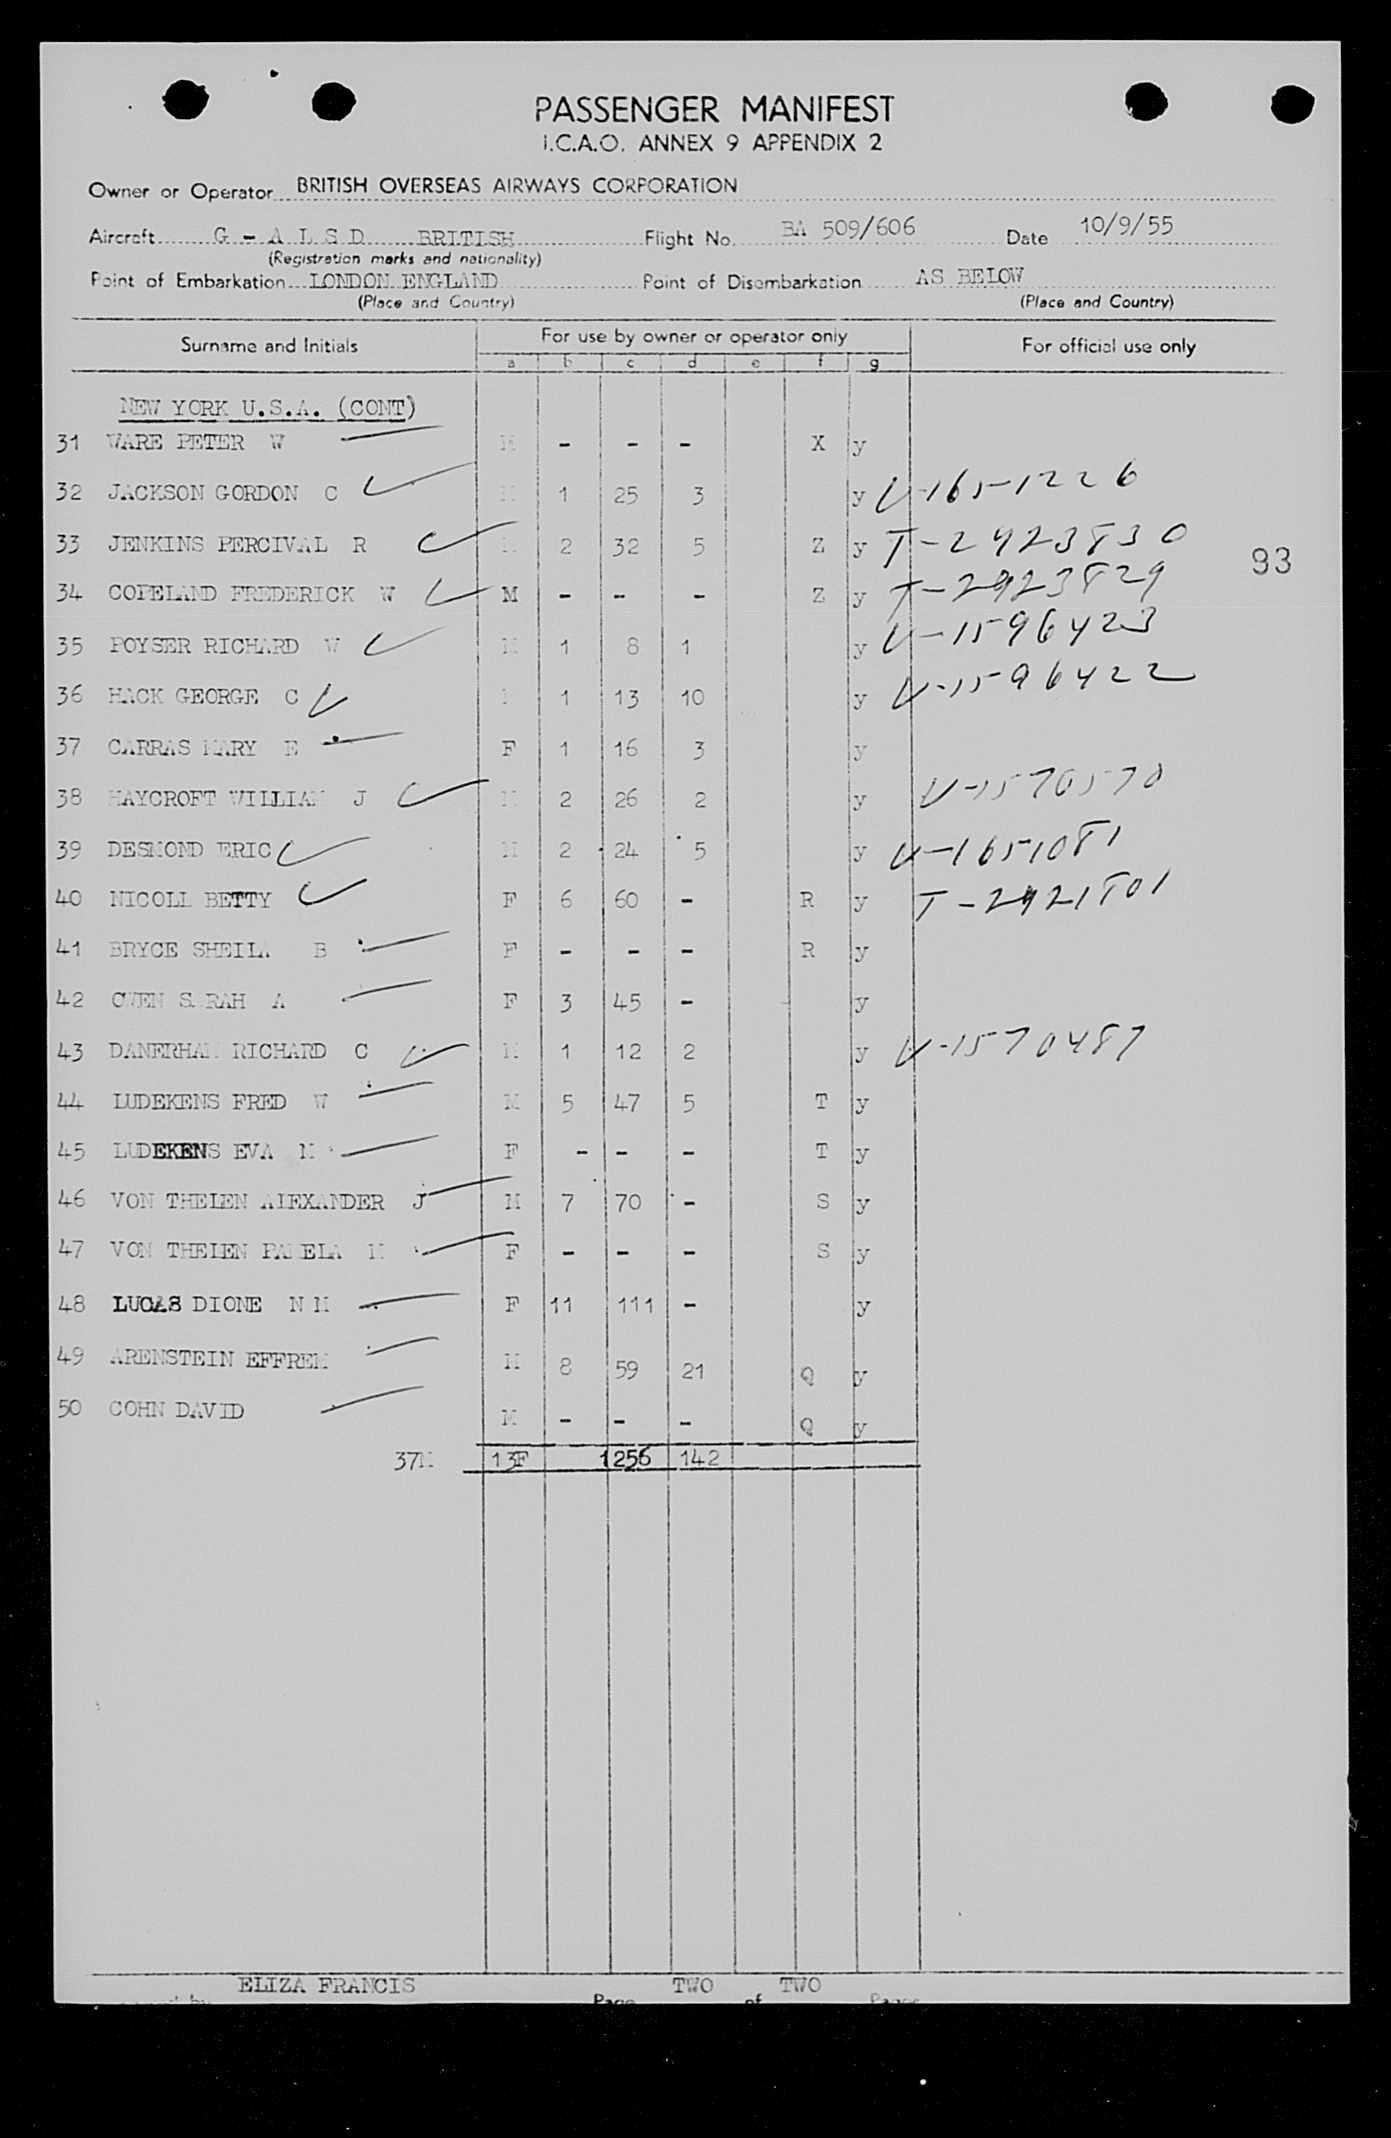 PASSENGER MANIFEST
I.C.A.O. ANNEX 9 APPENDIX 2
Owner or Operator BRITISH OVERSEAS AIRWAYS CORPORATION
Aircraft G - A L S D BRITISH Flight No. BA 509/606 Date 10/9/55
(Registration marks and nationality)
Point of Embarkation LONDON ENGLAND Point of Disembarkation AS BELOW
(Place and Country) (Place and Country)
Surname and Initials For use by owner or operator only For official use only
a b c d e f g
NEW YORK U.S.A. (CONT)
31 WARE PETER W M - - - X y
32 JACKSON GORDON C M 1 25 3 y V-165-1226
33 JENKINS PERCIVAL R M 2 32 5 Z y T-2923830
93
34 COPELAND FREDERICK W M - - - Z y T-2923829
35 POYSER RICHARD W M 1 8 1 y V-1596423
36 HACK GEORGE C M 1 13 10 y V-1596422
37 CARRAS MARY E F 1 16 3 y
38 HAYCROFT WILLIAM J M 2 26 2 y V-1570570
39 DESMOND ERIC M 2 24 5 y V-1651081
40 NICOLL BETTY F 6 60 - R y T-2921801
41 BRYCE SHEILA B F - - - R y
42 OWEN SARAH A F 3 45 - y
43 DANERHAM RICHARD C M 1 12 2 y V-1570487
44 LUDEKENS FRED W M 5 47 5 T y
45 LUDEKENS EVA M F - - - T y
46 VON THELEN ALEXANDER J M 7 70 - S y
47 VON THELEN PAMELA M F - - - S y
48 LUCAS DIONE N M F 11 111 - y
49 ARENSTEIN EFFREM M 8 59 21 Q y
50 COHN DAVID M - - - Q y
37M 13F 1256 142
ELIZA FRANCIS TWO TWO
Page of Pages